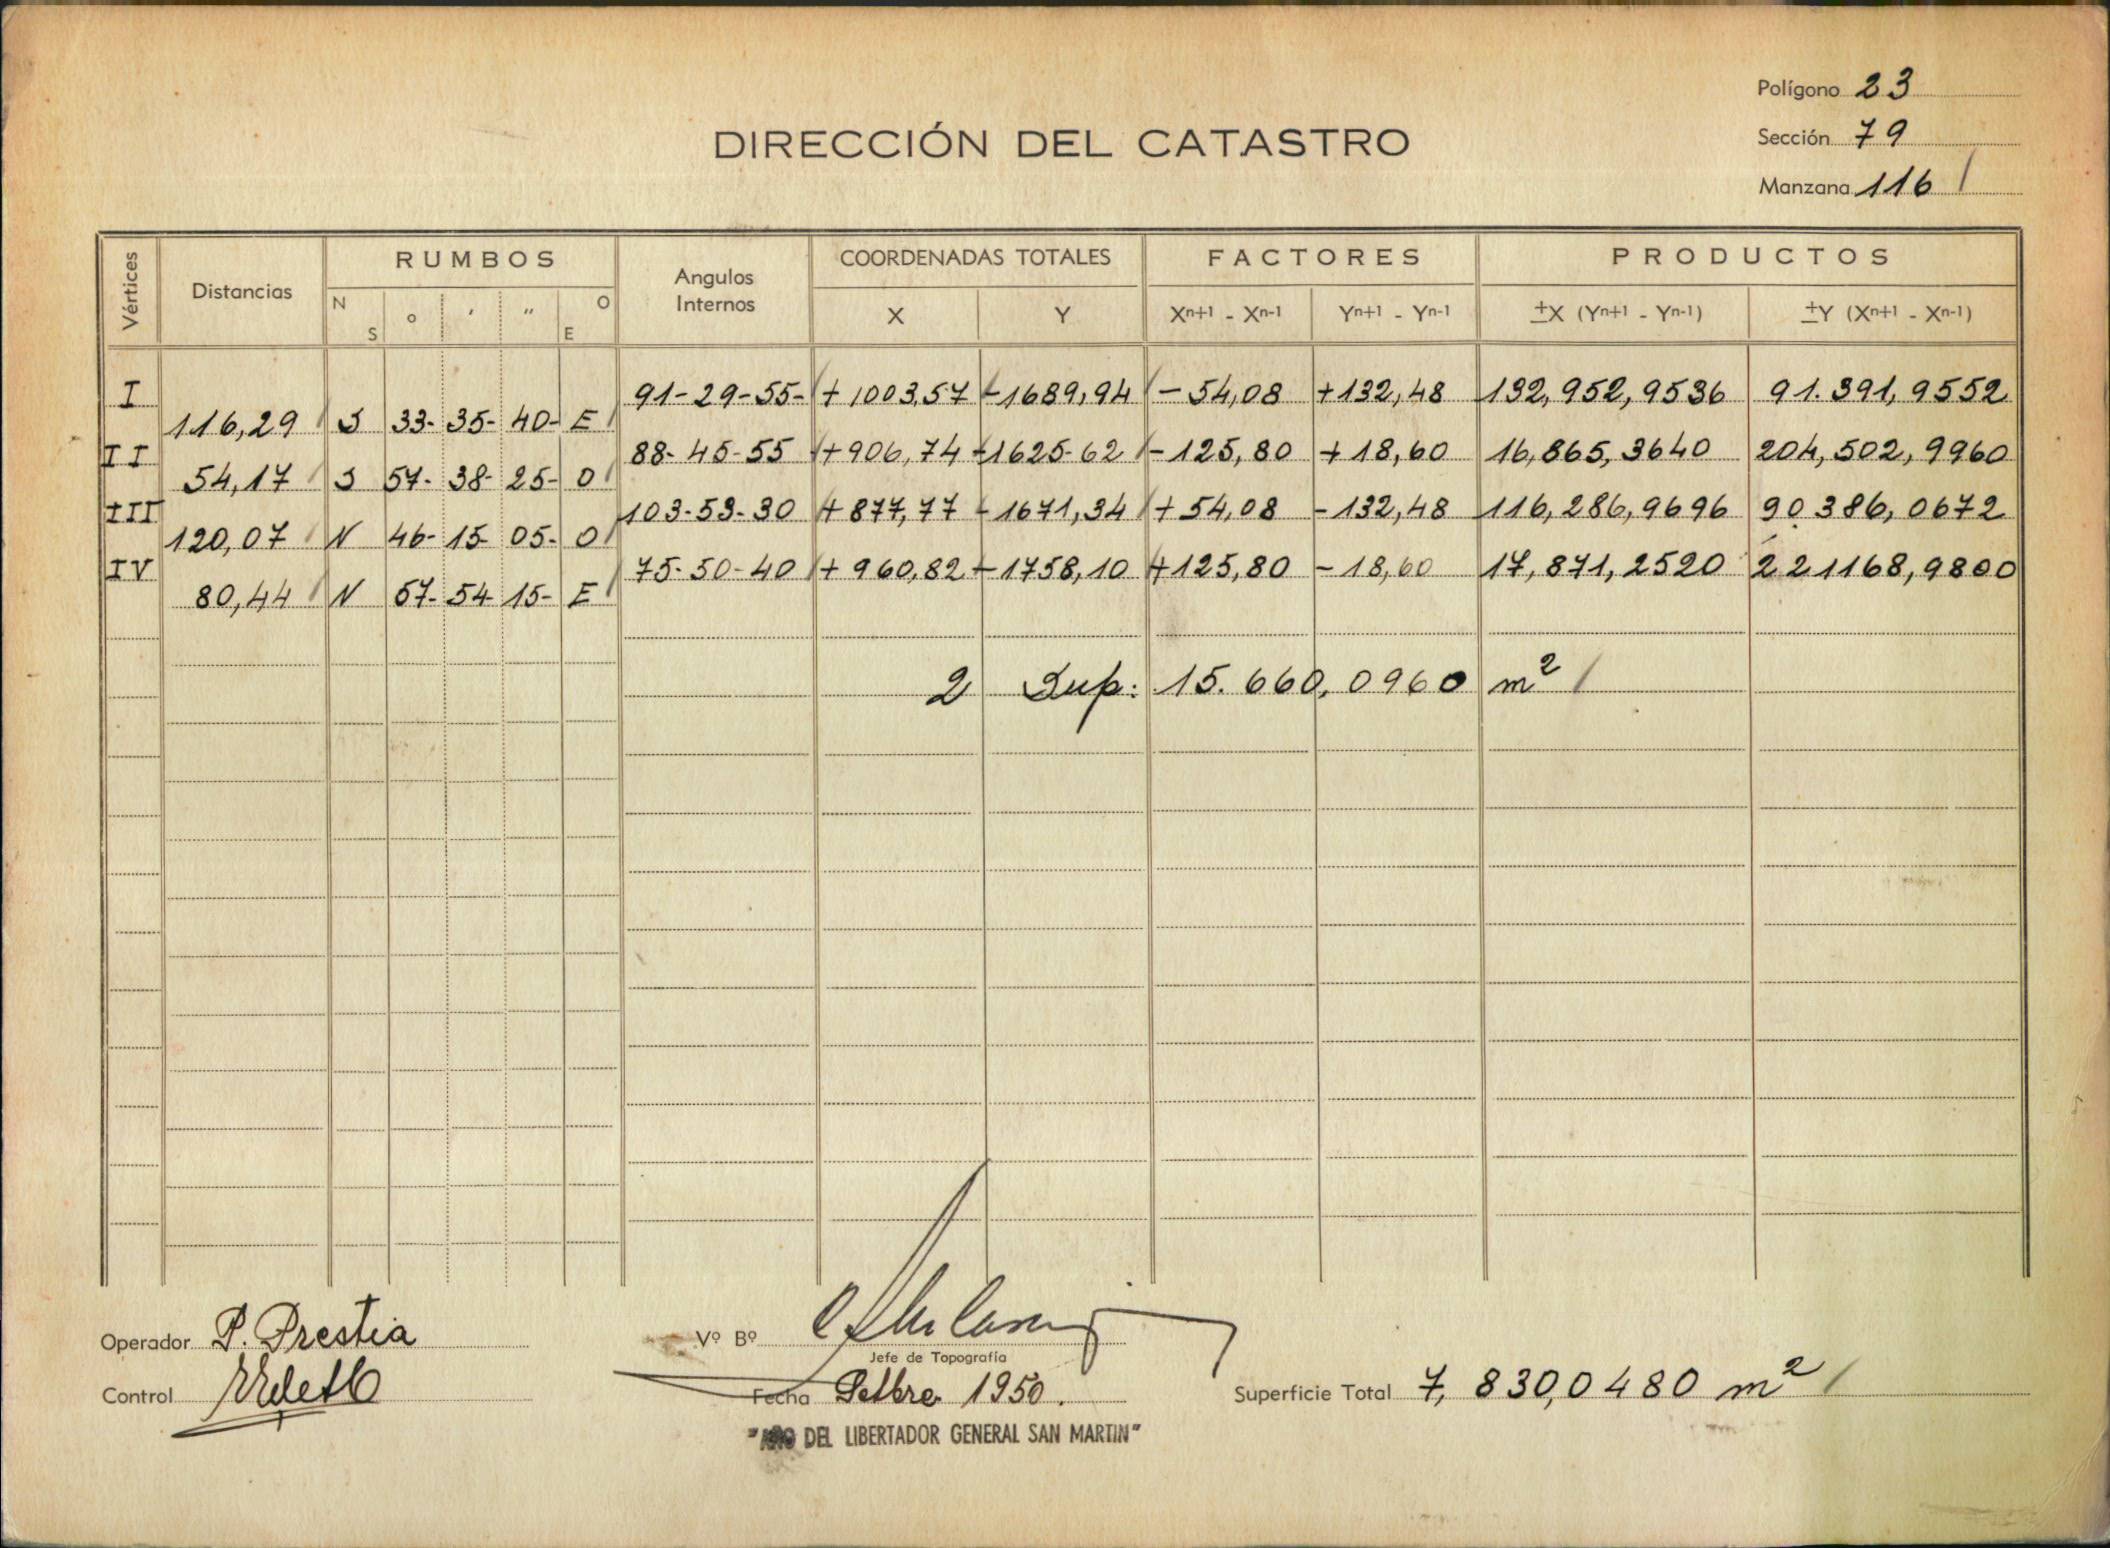 Polígono 23
DIRECCIÓN DEL CATASTRO
Sección 79
Manzana 116
Vértices Distancias RUMBOS Angulos Internos COORDENADAS TOTALES FACTORES PRODUCTOS
N S ° ' " O E X Y Xn+1 - Xn-1 Yn+1 - Yn-1 ±X (Yn+1 - Yn-1) ±Y (Xn+1 - Xn-1)
I 91-29-55- +1003,57 -1689,94 -54,08 +132,48 132,952,9536 91.391,9552
116,29 S 33- 35- 40- E
II 88-45-55 +906,74 -1625-62 -125,80 +18,60 16,865,3640 204,502,9960
54,17 S 57- 38- 25- O
III 103-53-30 +877,77 -1671,34 +54,08 -132,48 116,286,9696 90.386,0672
120,07 N 46- 15- 05- O
IV 75-50-40 +960,82 -1758,10 +125,80 -18,60 17,871,2520 221168,9800
80,44 N 57- 54- 15- E
2 Sup: 15.660,0960 m²
Operador P. Prestia
Vº Bº
Jefe de Topografía
Control
Fecha Setbre 1950.
Superficie Total 7,830,0480 m²
"AÑO DEL LIBERTADOR GENERAL SAN MARTIN"